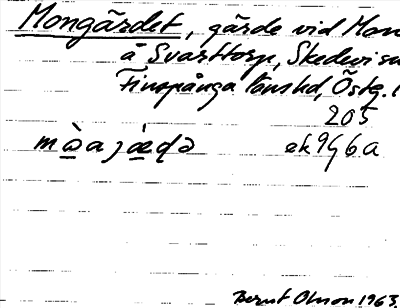 Mongärdet, gärde vid Mon
å Svarttorp, Skedevi sn
Finspånga länshd, Östg. l
205
ek 9G6a
Bernt Olsson 1963.